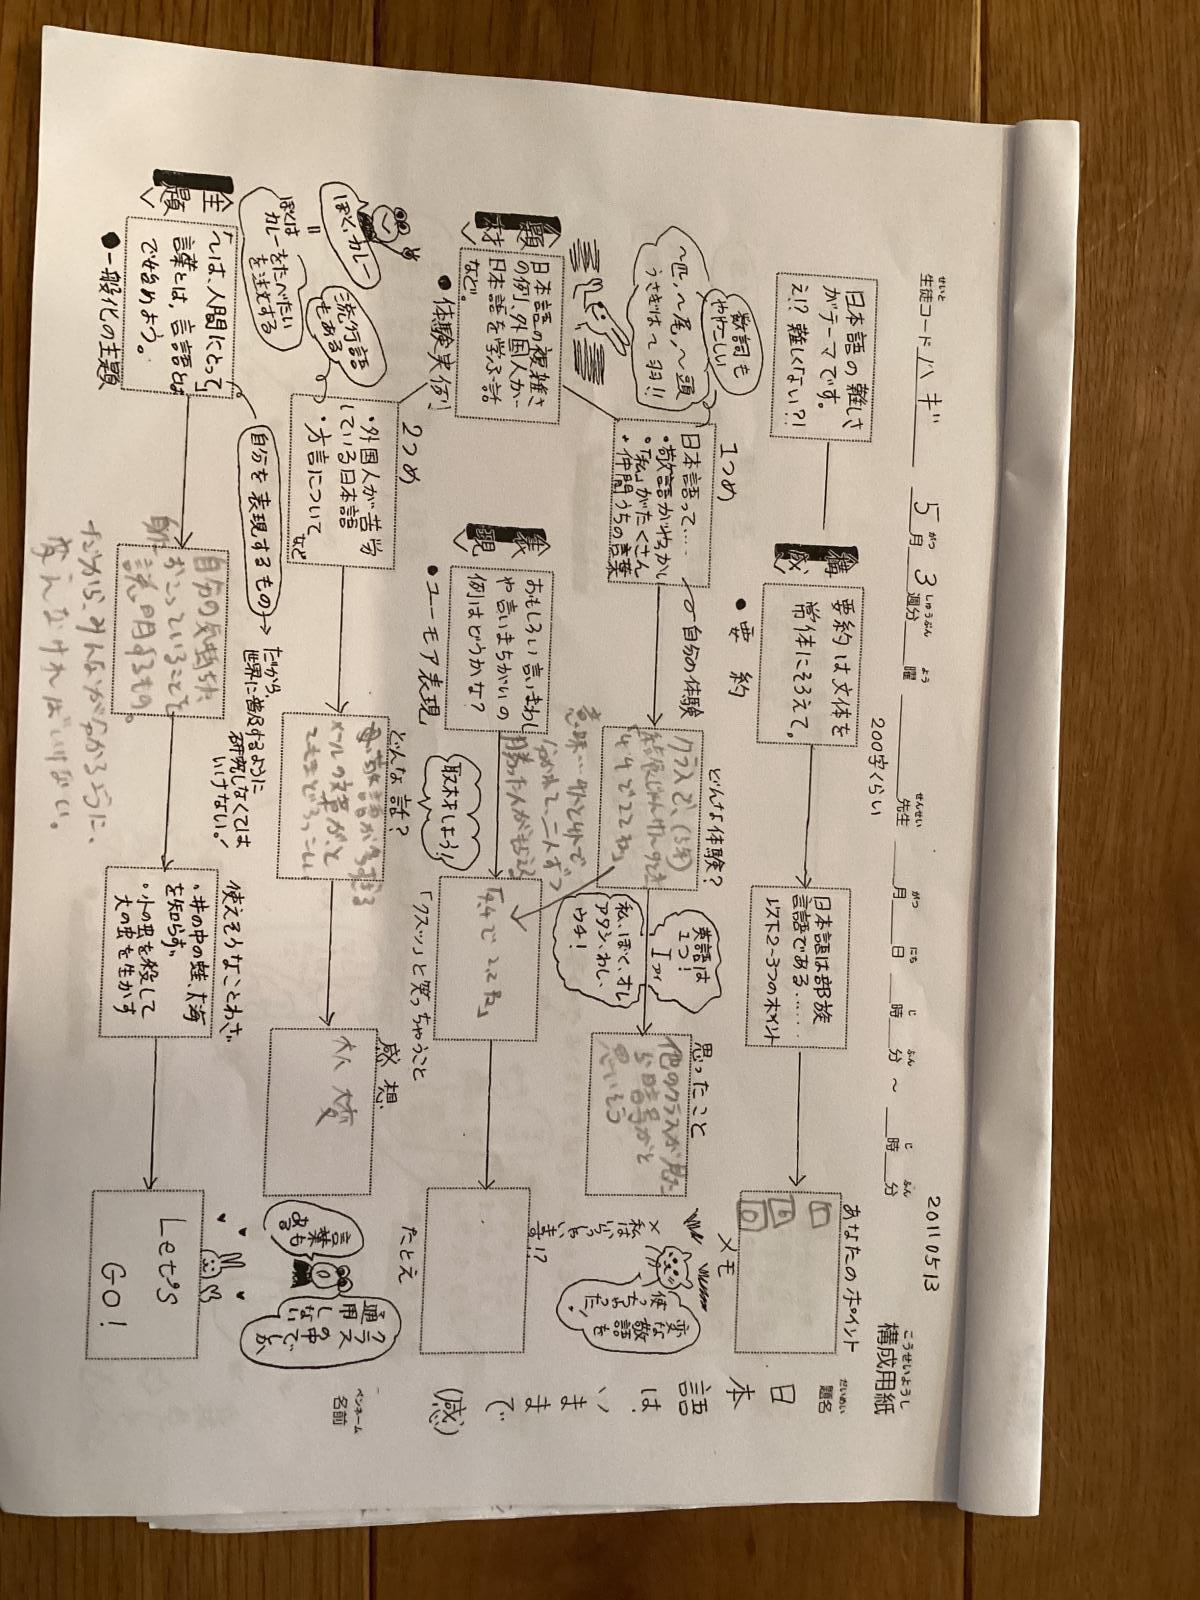 構成用紙
こうせいようし
20110513
生徒コード ハギ 5月3週分 曜 先生 月 日 時 分 ~ 時 分
せいと がつ しゅうぶん よう せんせい がつ にち じ ふん じ ふん
題名
だいめい
日本語は、いままで(感)
ペンネーム
名前
200字くらい
日本語の難しさ
がテーマです。
え!?難しくない?!
〈構成〉
●要約
要約は文体を
常体にそろえて。
日本語は部族
言語である……
以下2~3つのポイント
あなたのポイント
メモ
数詞も
ややこしい
~匹,~尾,~頭
うさぎは~羽!!
1つめ
日本語って……
・敬語がやっかい
・「私」がたくさん
・仲間うちの言葉
自分の体験
どんな体験?
クラスで、(5年)
「4.4で2.2ね」
意味…外と外で
分かれて、二人ずつ
勝った人がもらえる
英語は
1つ!
I アイ
私、ぼく、オレ
アタシ、わし、
ウチ!
思ったこと
他のクラスが見た
ら暗号かと
思いそう
変な
敬語を
使っちゃった!
〈題材〉
●体験実例
日本語の複雑さ
の例、外国人が
日本語を学ぶ話
など。
〈表現〉
●ユーモア表現
おもしろい言いまわし
や言いまちがいの
例はどうかな?
取材をしよう!
「クスッ」と笑っちゃうこと
「4.4で2.2ね」
たとえ
ぼく、カレー
=
ぼくは
カレーをたべたい
を注文する
流行語
もある
2つめ
・外国人が苦労
している日本語
・方言について
など
どんな話?
感想
大変
クラス
の中でしか
通用しない
言葉も
ある
〈主題〉
●一般化の主題
「~は、人間にとって」
言葉とは、言語とは
で始めよう。
自分を表現するもの
だから、
世界に普及するように
研究しなくては
いけない!
自分の気持ちや
起こっていることを
説明するもの。
だから、みんなが分かるように、
変えなければいけない。
使えそうなことわざ
・井の中の蛙、大海
を知らず
・小の虫を殺して
大の虫を生かす
Let's
GO!